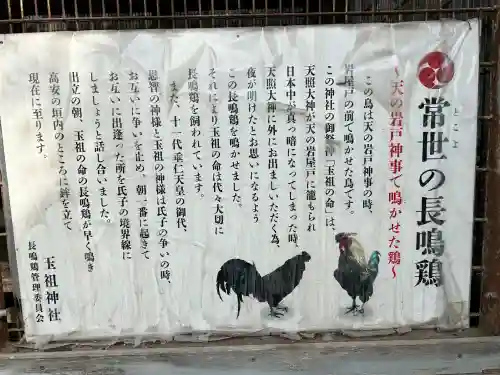 とこよ
常世の長鳴鶏
～天の岩戸神事で鳴かせた鶏～
この鳥は天の岩戸神事の時、
岩屋戸の前で鳴かせた鳥です。
この神社の御祭神「玉祖の命」は、
天照大神が天の岩屋戸に籠もられ
日本中が真っ暗になってしまった時、
天照大神に外にお出ましいただく為、
夜が明けたとお思いになるよう
この長鳴鶏を鳴かせました。
それにより玉祖の命は代々大切に
長鳴鶏を飼われています。
また、十一代垂仁天皇の御代、
恩智の神様と玉祖の神様は氏子の争いの時、
お互いに争いを止め、朝一番に起きて
お互いに出逢った所を氏子の境界線に
しましょうと話し合いました。
出立の朝、玉祖の命の長鳴鶏が早く鳴き
高安の垣内のところに絆を立て
現在に至ります。
玉祖神社
長鳴鶏管理委員会